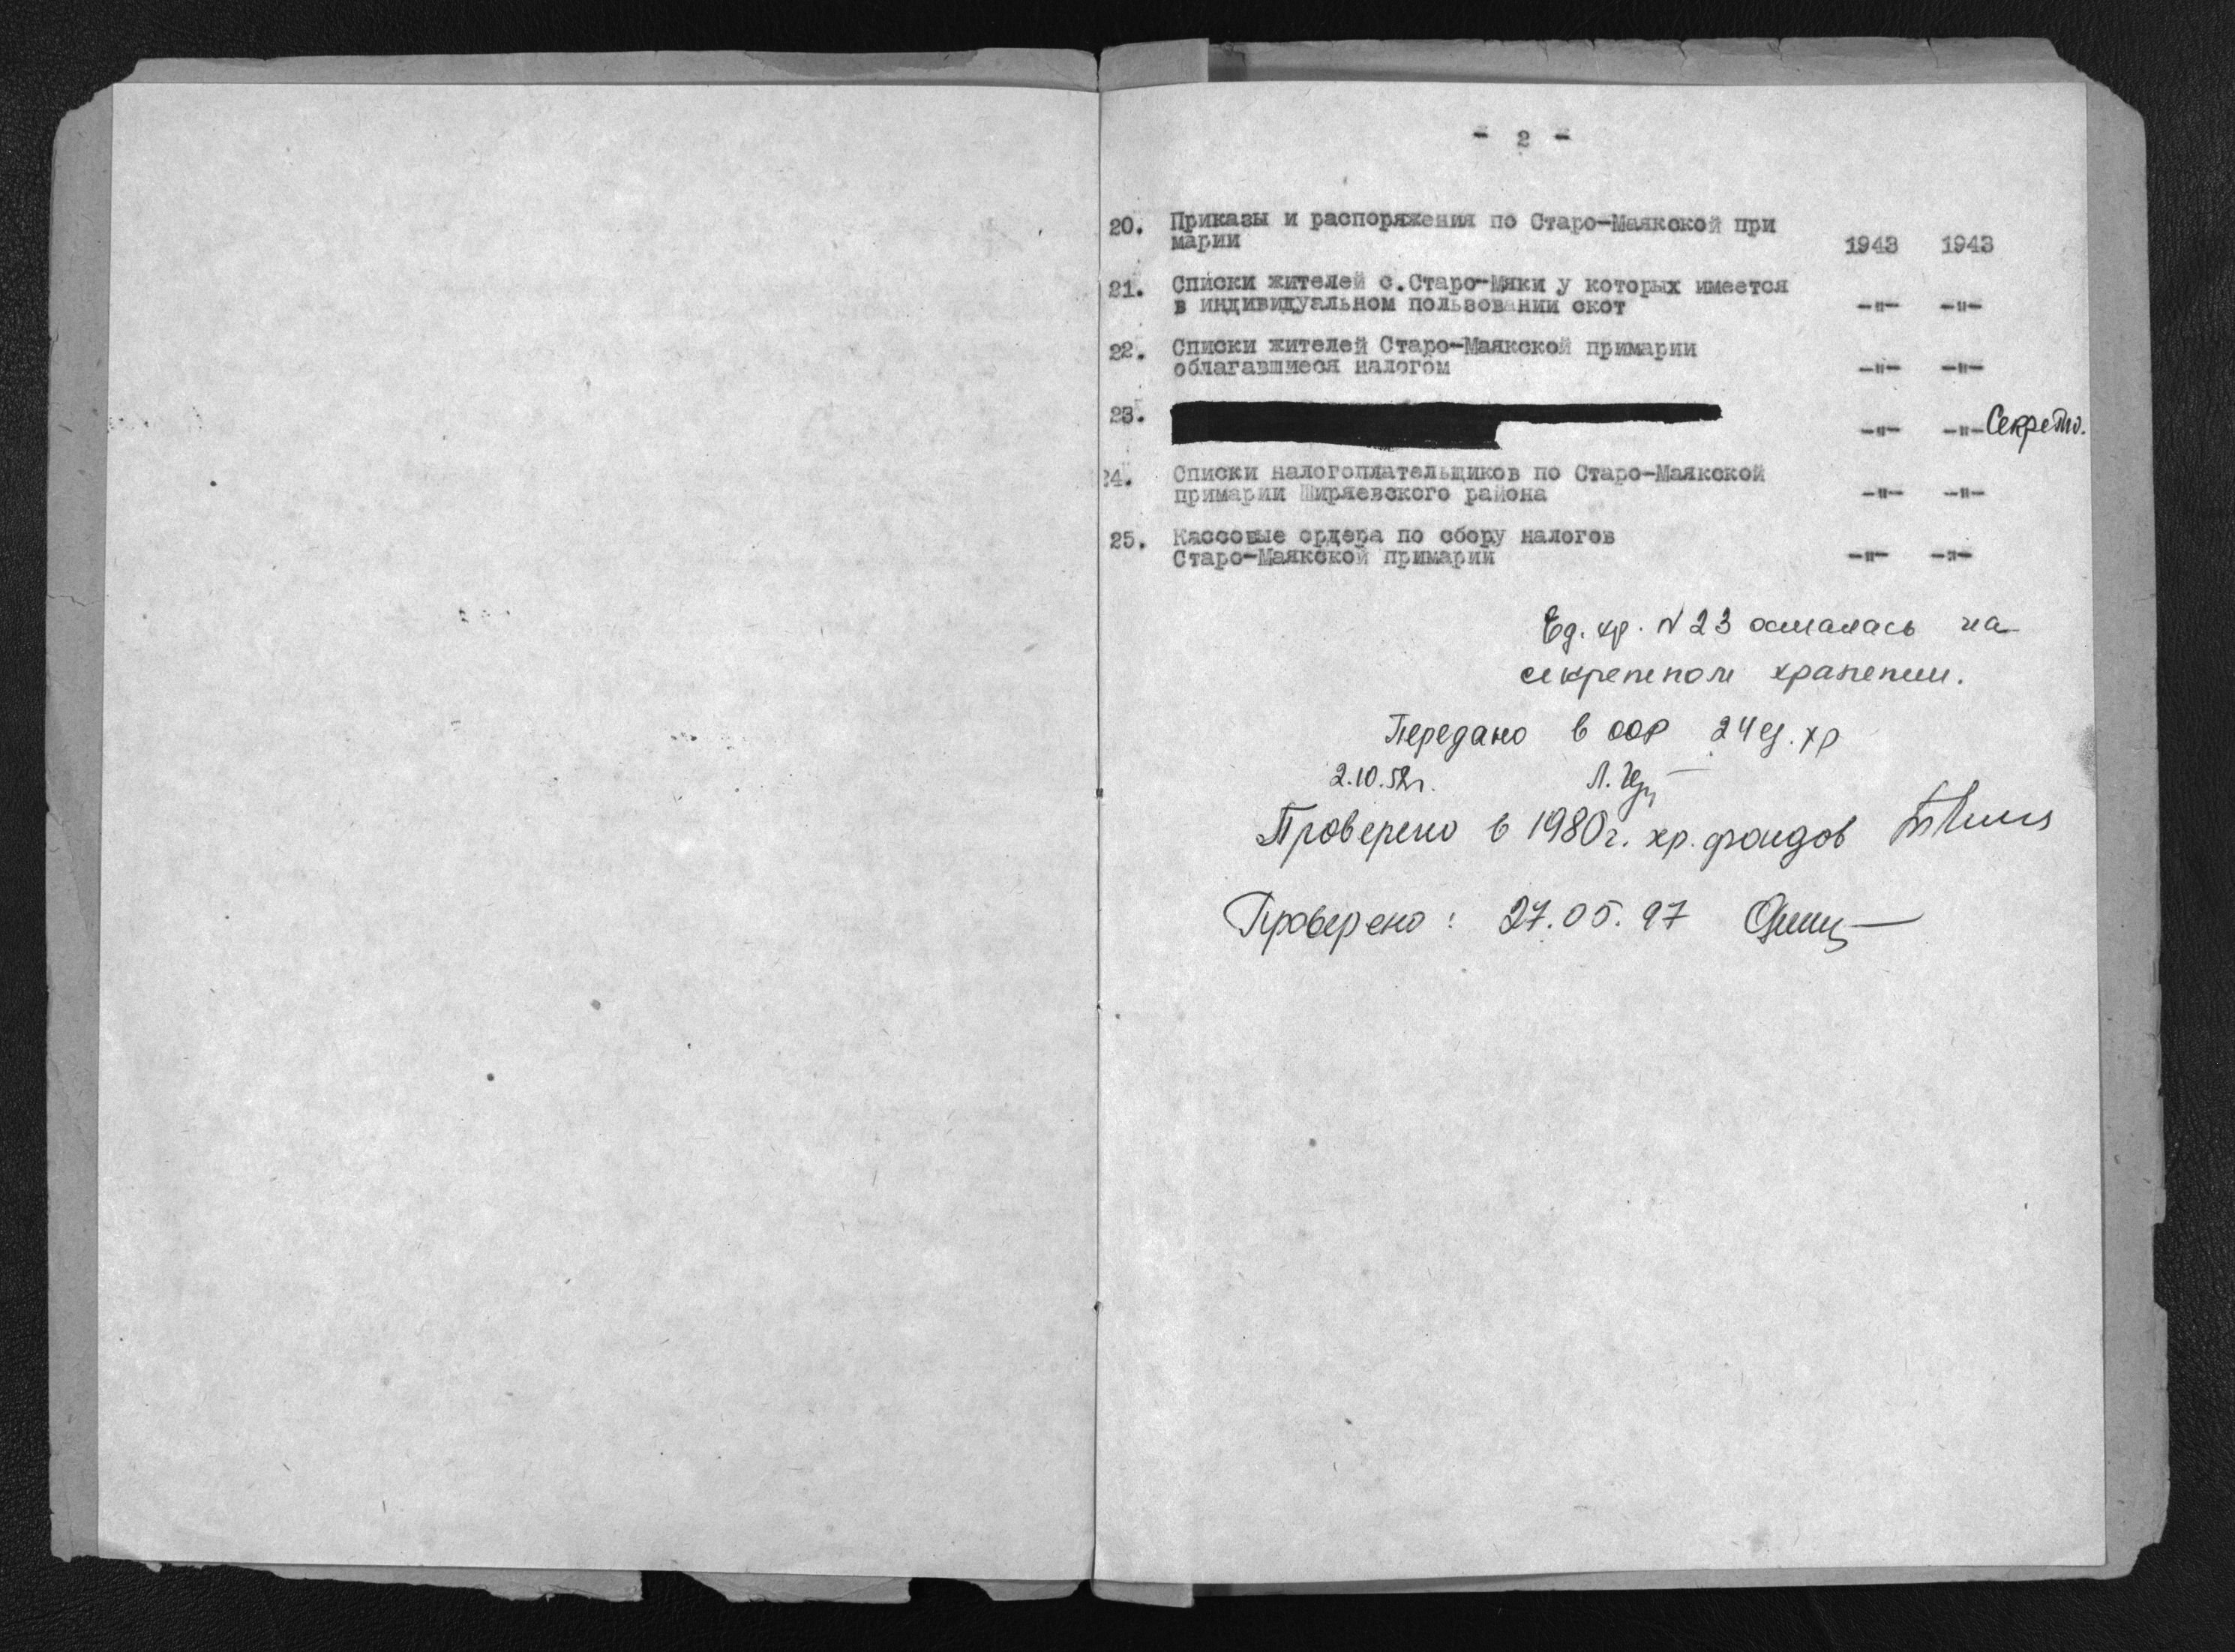 - 2 -
20. Приказы и распоряжения по Старо-Маякской при
марии 1943 1943
21. Списки жителей с.Старо-Мяки у которых имеется
в индивидуальном пользовании скот -"- -"-
22. Списки жителей Старо-Маякской примарии
облагавшиеся налогом -"- -"-
23. -"- -"- Секретно.
24. Списки налогоплательщиков по Старо-Маякской
примарии Ширяевского района -"- -"-
25. Кассовые ордера по сбору налогов
Старо-Маякской примарии -"- -"-
Ед. хр. N 23 осталась на
секретном хранении.
Передано в ООФ 24 ед. хр
2.10.52г.
Проверено в 1980г. хр. фондов
Проверено: 27.05.97